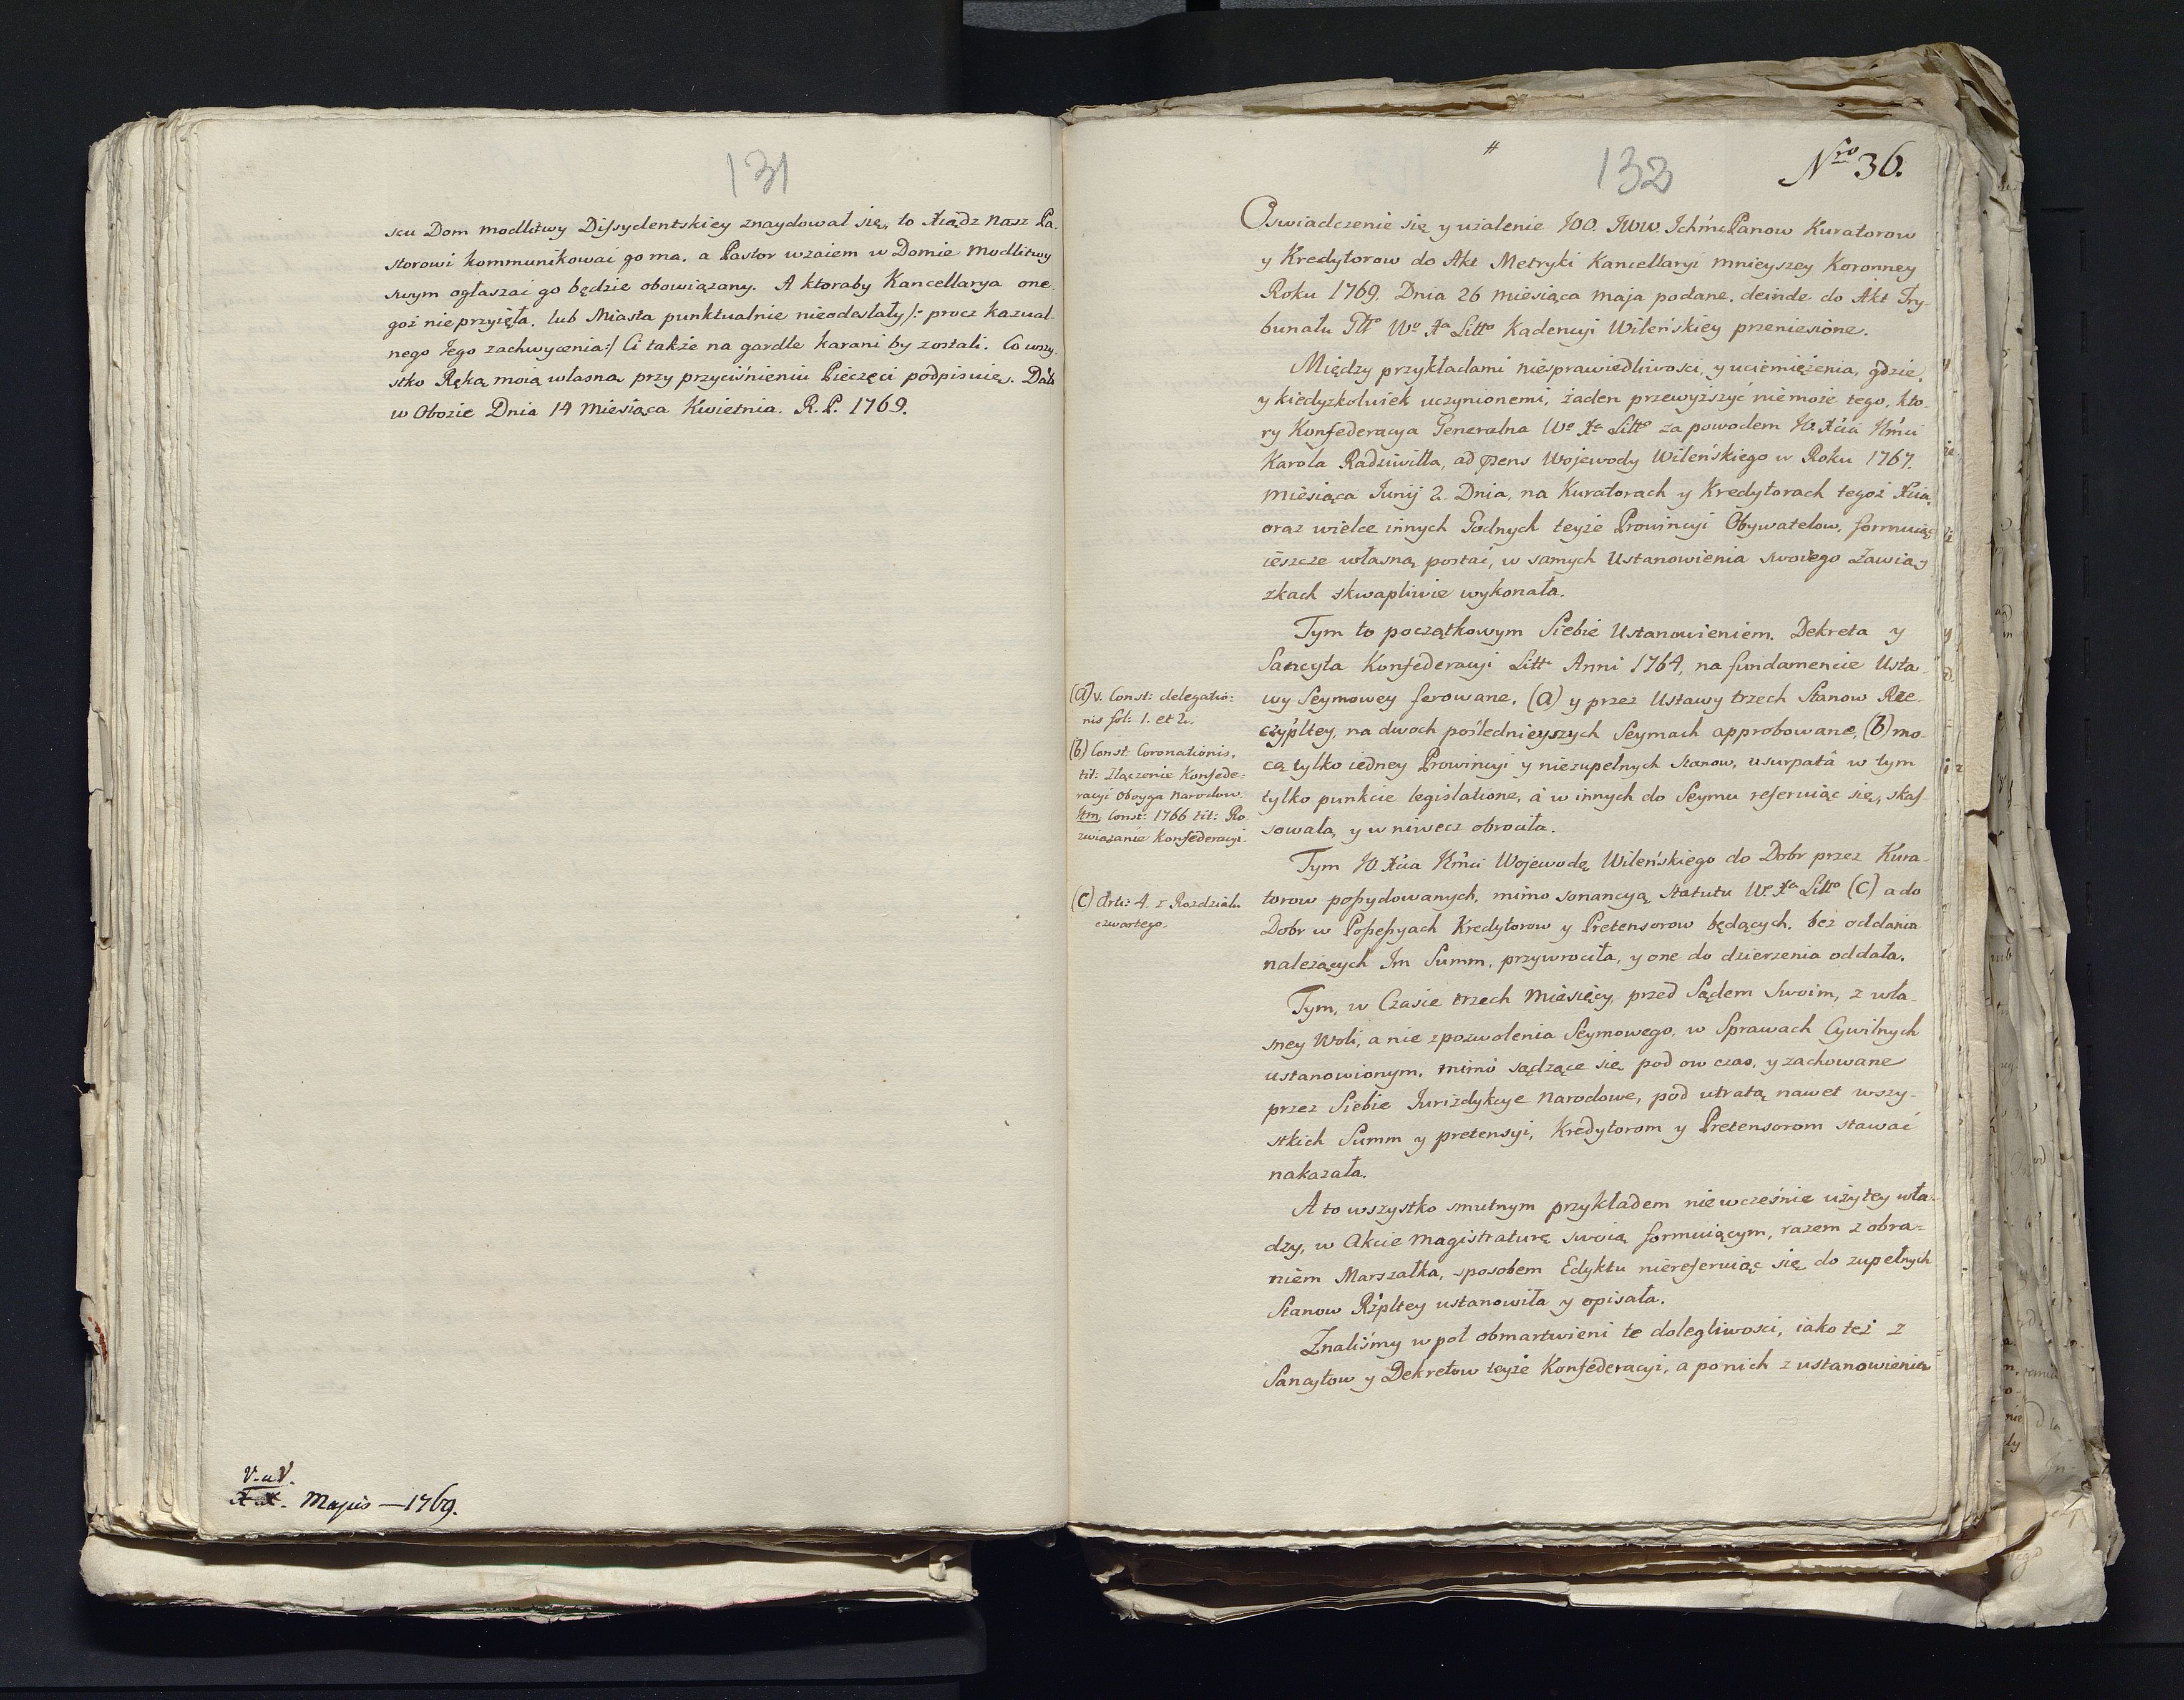 131
scu Dom modlitwy Dissydentskiey znaydował się, to Xiądz Nasz Pa-
storowi kommunikować go ma, a Pastor wzaiem w Domie Modlitwy
swym ogłaszać go będzie obowiązany. A ktoraby Kancellarya one-
goż nieprzyięła, lub Miasta punktualnie nieodesłały /: procz kazual-
nego Jego zachwycenia :/ Ci także na gardle karani by zostali. Co wszy-
stko Ręką moią własną przy przyciśnieniu Pieczęci podpisuię. Datt
w Obozie Dnia 14 Miesiąca Kwietnia. R. P. 1769.
V. a V.
Majus — 1769.
#
132
Nro 36.
Oswiadczenie się y użalenie JOO. JWW. Ichmć Panow Kuratorow
y Kredytorow do Akt Metryki Kancellaryi mnieyszey Koronney
Roku 1769. Dnia 26 miesiąca maja podane, deinde do Akt Try-
bunału Głło Wo Xa Litto Kadencyi Wileńskiey przeniesione.
Między przykładami niesprawiedliwosci, y uciemiężenia, gdzie,
y kiedyżkolwiek uczynionemi, żaden przewyższyć niemoże tego, kto-
ry Konfederacya Generalna Wo Xa Litto za powodem JO. Xcia Jmći
Karola Radziwiłła, ad præns Wojewody Wileńskiego w Roku 1767.
miesiąca Junij 2. Dnia, na Kuratorach y Kredytorach tegoż Xcia,
oraz wielce innych Godnych teyże Prowincyi Obywatelow, formuiąc
ieszcze własną postać, w samych Ustanowienia swoiego Zawią-
zkach skwapliwie wykonała.
Tym to początkowym Siebie Ustanowieniem, Dekreta y
Sancyta Konfederacyi Litt Anni 1764, na fundamencie Usta-
wy Seymowey ferowane, (a) y przez Ustawy trzech Stanow Rze-
czypltey, na dwoch poślednieyszych Seymach approbowane, (b) mo-
cą tylko iedney Prowincyi y niezupełnych Stanow, usurpatâ w tym
tylko punkcie legislatione, a w innych do Seymu referuiąc się, skas-
sowała, y w niwecz obrociła.
(a) v. Const: delegatio-
nis fol: 1. et 2.
(b) Const: Coronationis,
tit: Złączenie Konfede-
racyi Oboyga Narodow
Itm, Const: 1766 tit: Ro-
związanie Konfederacyi.
Tym JO. Xcia Jmći Wojewodę Wileńskiego do Dobr przez Kura-
torow possydowanych, mimo sonancyą Statutu Wo Xa Litto (c) a do
Dobr w Possessyach Kredytorow y Pretensorow będących, bez oddania
należących Im Summ, przywrociła, y one do dzierzenia oddała.
(c) Arti: 4. z Rozdziału
czwartego.
Tym, w Czasie trzech Miesięcy, przed Sądem Swoim, z wła-
sney Woli, a nie z pozwolenia Seymowego, w Sprawach Cywilnych
ustanowionym, mimo sądzące się pod ow czas, y zachowane
przez Siebie Jurizdykcye Narodowe, pod utratą nawet wszy-
stkich Summ y pretensyi, Kredytorom y Pretensorom stawać
nakazała.
A to wszystko smutnym przykładem niewcześnie użytey wła-
dzy, w Akcie magistraturę swoią formuiącym, razem z obra-
niem Marszałka, sposobem Edyktu niereferuiąc się do zupełnych
Stanow Rzpltey ustanowiła y opisała.
Znaliśmy w poł obmartwieni te dolegliwosci, iako też z
Sancytow y Dekretow teyże Konfederacyi, a po nich z ustanowienia